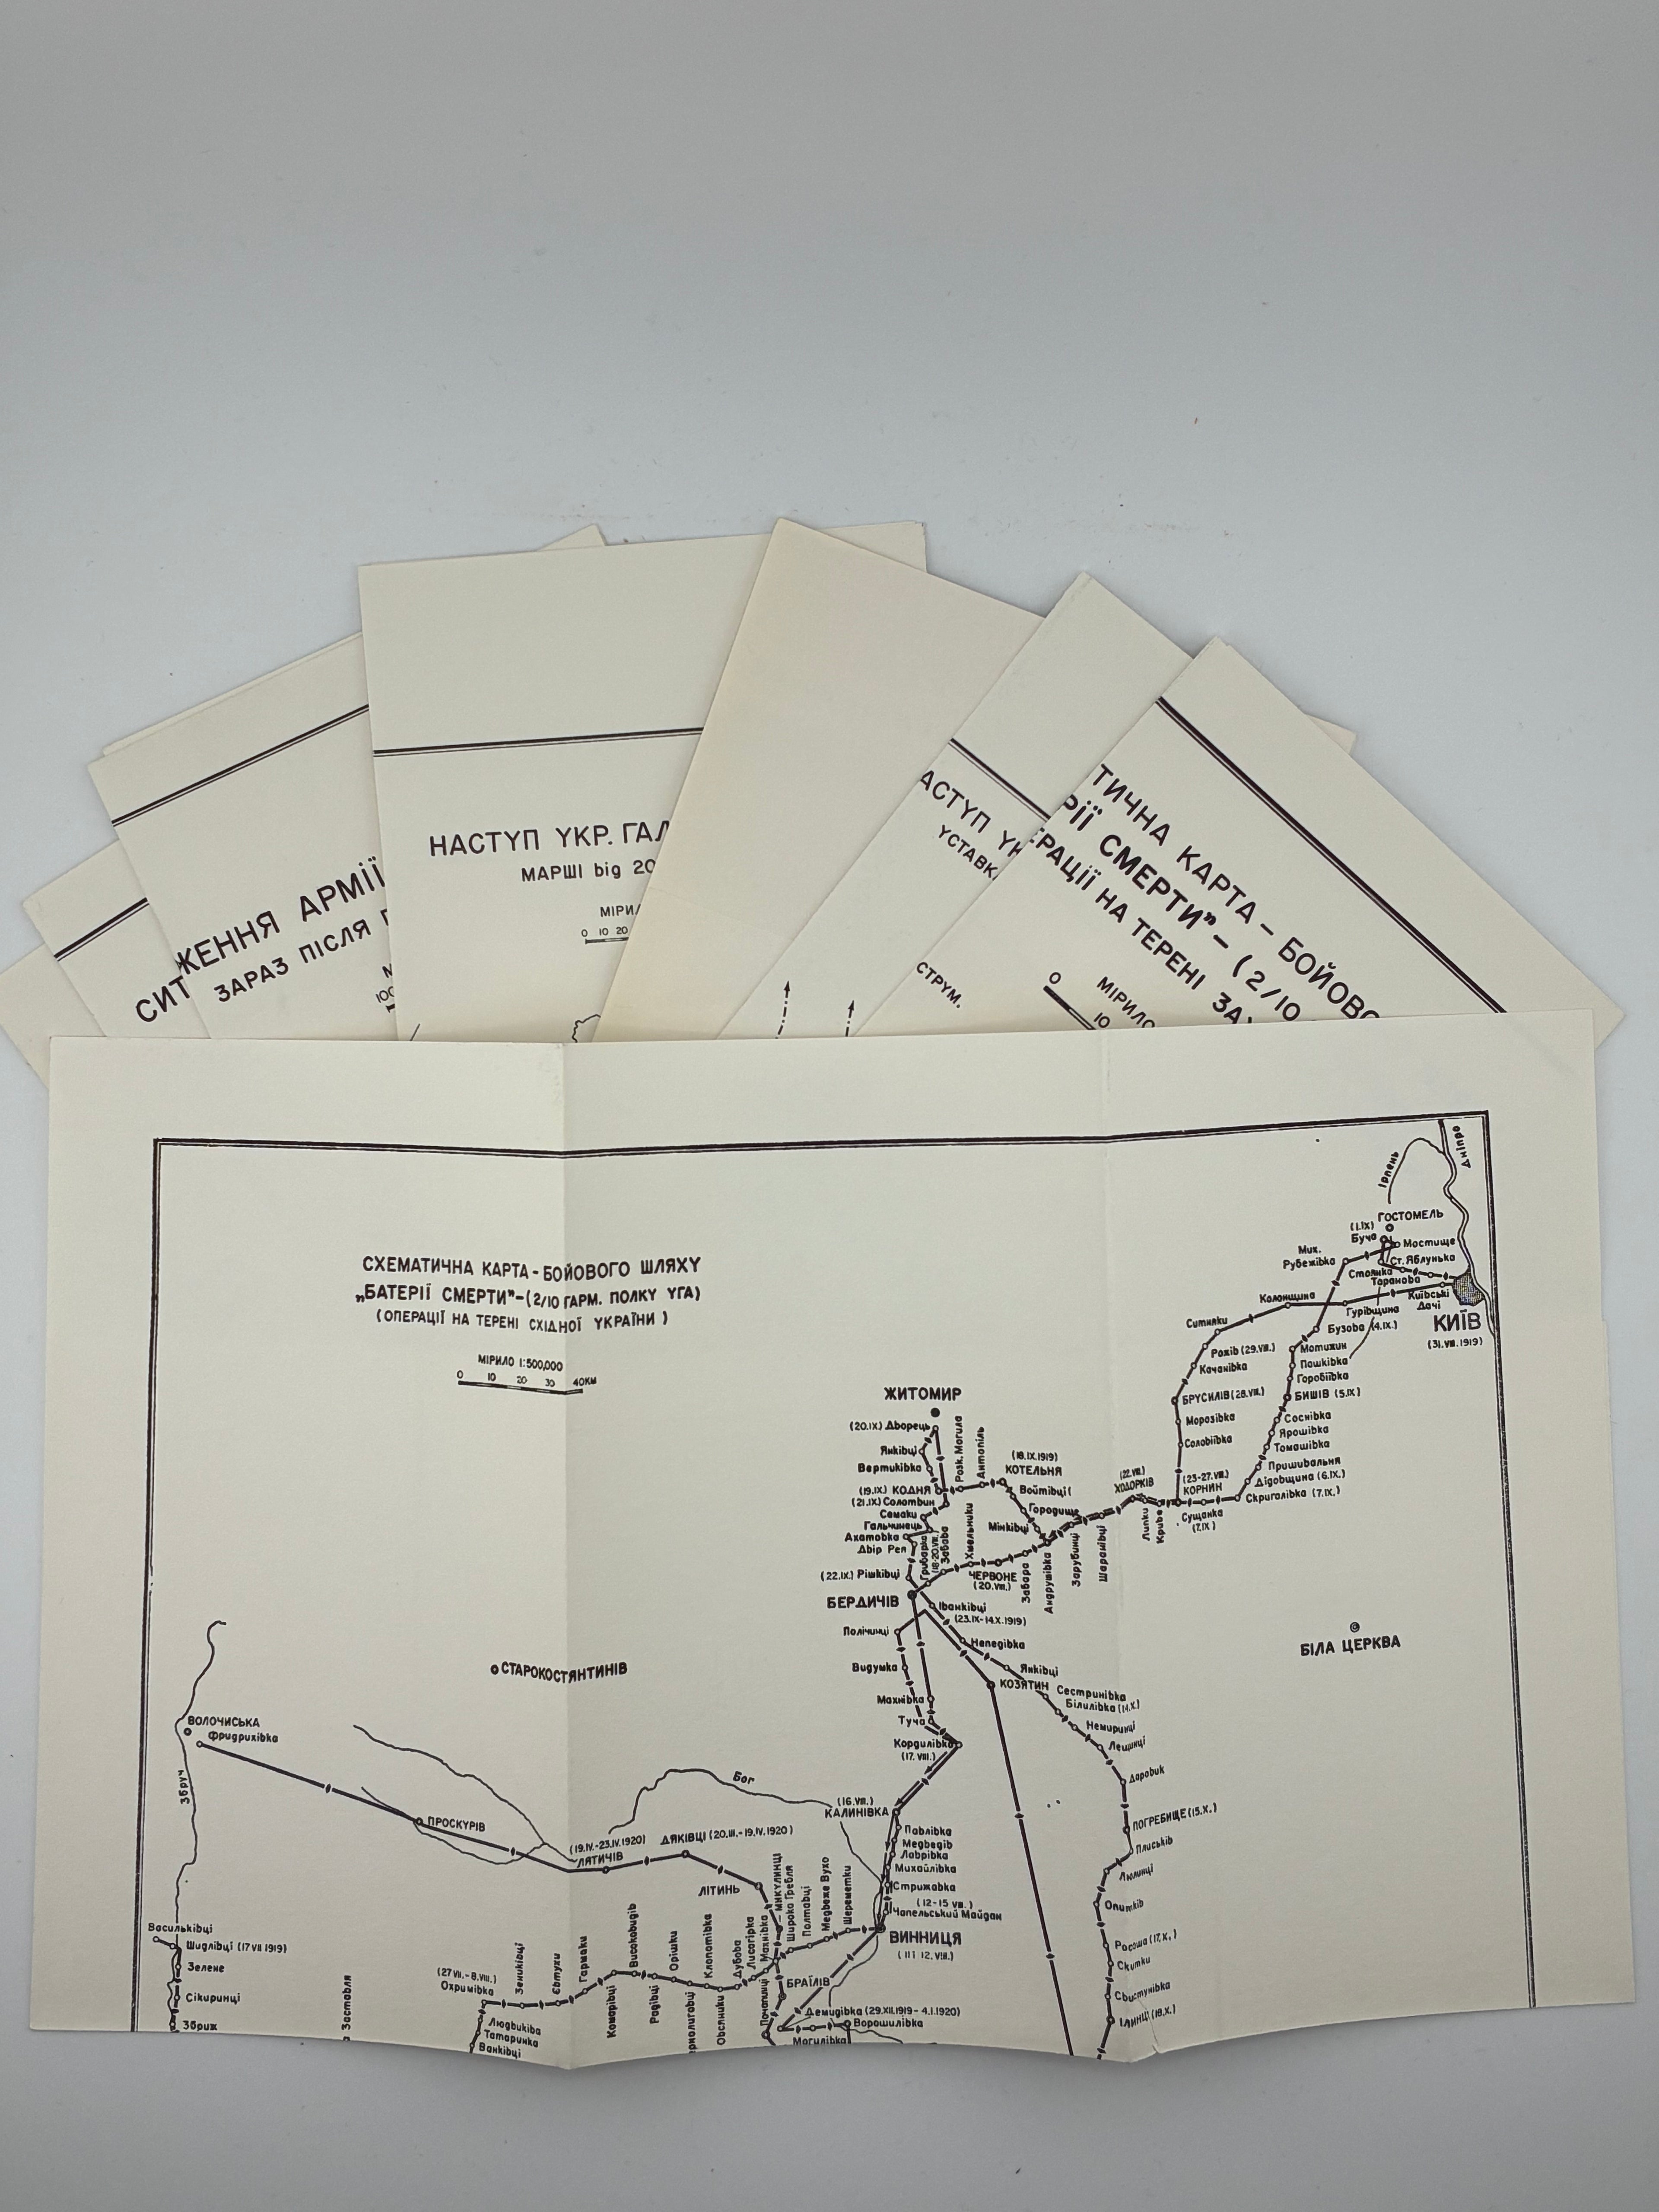 СИТ
ЖЕННЯ АРМІЇ
ЗАРАЗ ПІСЛЯ
100
НАСТУП УКР. ГАЛ
МАРШІ від 20
МІРИ
0 10 20
АСТУП УК
УСТАВК
СТРУМ.
ТИЧНА КАРТА – БОЙОВО
РІЇ СМЕРТИ” – (2/10
ЕРАЦІЇ НА ТЕРЕНІ ЗА
МІРИЛО
0 10
СХЕМАТИЧНА КАРТА - БОЙОВОГО ШЛЯХУ
„БАТЕРІЇ СМЕРТИ”-(2/10 ГАРМ. ПОЛКУ УГА)
(ОПЕРАЦІЇ НА ТЕРЕНІ СХІДНОЇ УКРАЇНИ)
МІРИЛО 1:500,000
0 10 20 30 40КМ
Дніпро
Ірпень
ГОСТОМЕЛЬ
(1.IX)
Буча
Мостище
Мих.
Рубежівка
Ст. Яблунька
Стоянка
Таранова
Колонщина
Київські
Дачі
Гурівщина
КИЇВ
(31.VIII.1919)
Ситняки
Бузова (4.IX.)
Рожів (29.VIII.)
Мотижин
Качанівка
Пашківка
Горобіївка
БРУСИЛІВ (28.VIII.)
БИШІВ (5.IX)
Морозівка
Соснівка
Ярошівка
Соловіївка
Томашівка
Пришивальня
Дідовщина (6.IX.)
(23-27.VIII.)
КОРНИН
Скригалівка (7.IX.)
Сущанка
(7.IX)
(22.VIII.)
ХОДОРКІВ
Липки
Криве
ЖИТОМИР
(20.IX) Дворець
Янківці
Вертиківка
Розк. Могила
Антопіль
(18.IX.1919)
КОТЕЛЬНЯ
(19.IX) КОДНЯ
Войтівці
(21.IX) Солотвин
Городище
Семаки
Гальчинець
Мінківці
Ахатовка
Двір Рея
Хмельники
Забара
Андрушівка
Зарубинці
Шараївці
(22.IX.) Рішківці
(18-20.VIII.)
ЧЕРВОНЕ
(20.VIII.)
БЕРДИЧІВ
Іванківці
(23.IX-14.X.1919)
БІЛА ЦЕРКВА
Полічинці
Непедівка
Видумка
Янківці
СТАРОКОСТЯНТИНІВ
КОЗЯТИН
Сестринівка
Білилівка (14.X.)
Махнівка
Немиринці
Туча
Лещинці
Кордилівка
(17.VIII.)
ВОЛОЧИСЬКА
Фридрихівка
Збруч
Даровик
Бог
(16.VIII.)
КАЛИНІВКА
ПОГРЕБИЩЕ (15.X.)
ПРОСКУРІВ
(19.IV.-23.IV.1920)
ЛЯТИЧІВ
ДЯКІВЦІ (20.III.-19.IV.1920)
Павлівка
Медведів
Лаврівка
Плисків
Михайлівка
Люлинці
ЛІТИНЬ
Стрижавка
(12-15 VIII.)
Чапельський Майдан
Опитків
МИКУЛИНЦІ
Широка Гребля
Полтавці
Медвеже Вухо
Шереметки
Васильківці
Шидлівці (17 VII 1919)
ВИННИЦЯ
(11 і 12. VIII.)
Росоша (17.X.)
Скитки
Зелене
Сікиринці
Збриж
Заставля
(27 VII.-8.VIII.)
Охримівка
Зениківці
Євтухи
Гармаки
Комарівці
Високовидів
Радівці
Орішки
Клопотівка
Овсяники
Дубова
Лисогірка
Махнівка
Почапинці
БРАЇЛІВ
Свистунівка
ІЛИНЦІ (18.X.)
Демидівка (29.XII.1919 - 4.I.1920)
Ворошилівка
Могилівка
Людвиківа
Татаринка
Ванківці